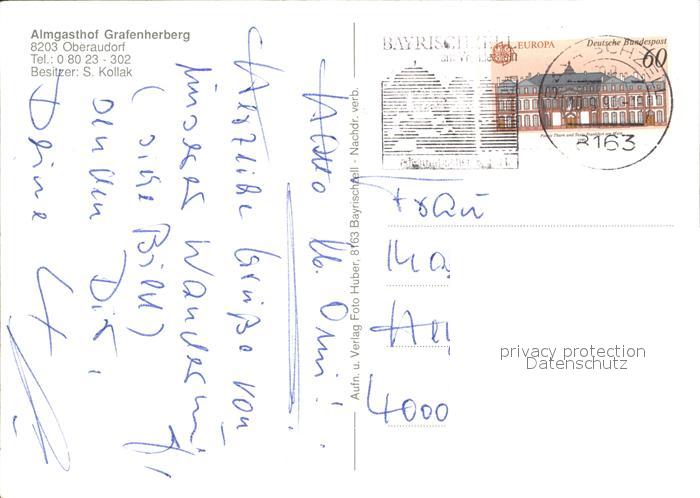 Almgasthof Grafenherberg
8203 Oberaudorf
Tel.: 0 80 23 - 302
Besitzer: S. Kollak
Hallo lb. Omi!
Herzliche Grüße von
unserer Wanderung,
(siehe Bild)
Deine
Aufn. u. Verlag Foto Huber, 8163 Bayrischzell - Nachdr. verb.
BAYRISCHZELL
EUROPA
Deutsche Bundespost
60
8163
Frau
4000
privacy protection
Datenschutz